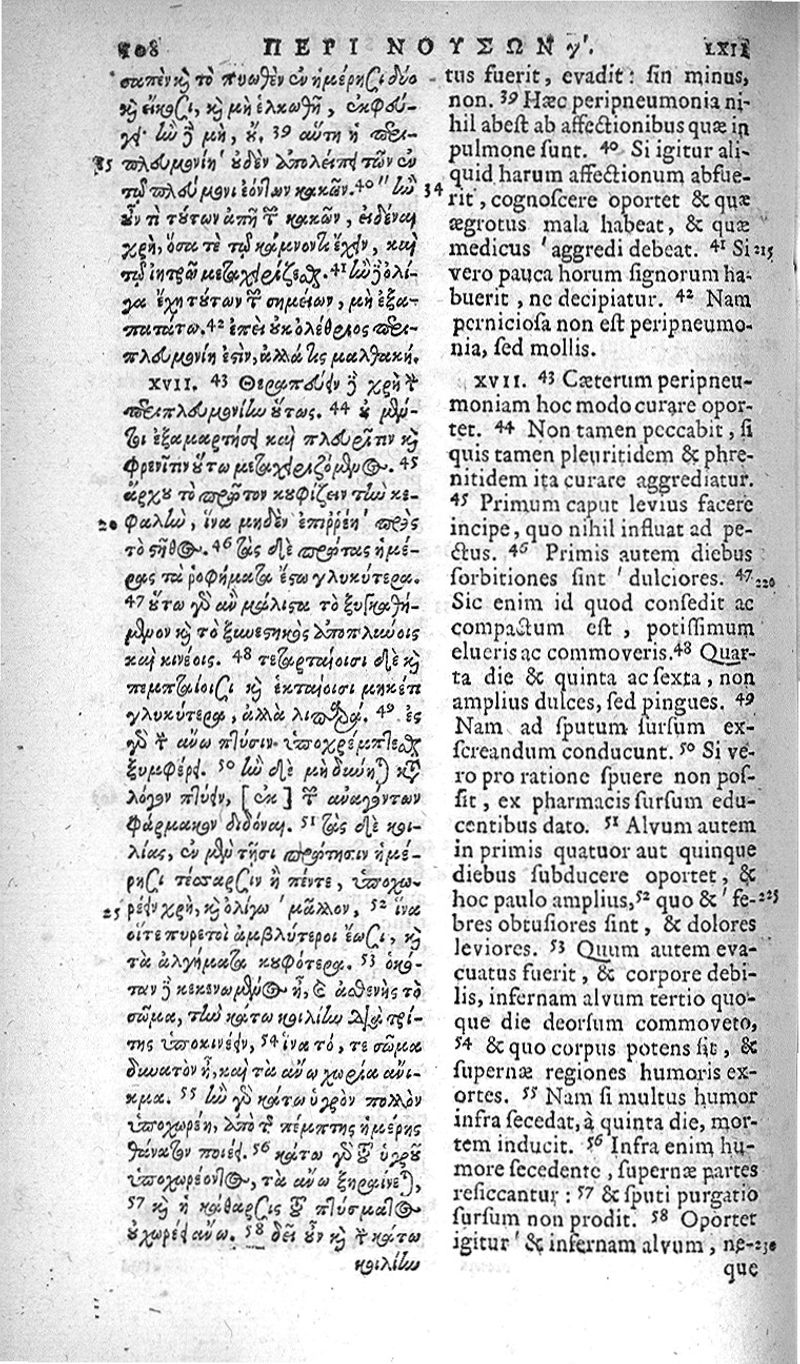 408 ΠΕΡΙ ΝΟΥΣΩΝ γ'. LXII
σαπὲν καὶ τὸ πυωθὲν ἐν ἡμέρῃσι δύο
καὶ εἴκοσι, καὶ μὴ ἑλκωθῇ, ἐκφεύ-
γει· ἢν δὲ μὴ, οὔ. 39 αὕτη ἡ περι-
πλευμονίη ' οὐδὲν ἀπολείπει τῶν ἐν
τῷ πλεύμονι ἐόντων κακῶν. 40 " ἢν
οὖν τι τούτων ἀπῇ τῶν κακῶν, εἰδέναι
χρὴ, ὅσα τε τὸν κάμνοντα ἔχειν, καὶ
τὸν ἰητρὸν μεταχειρίζεσθαι. 41 ἢν δὲ ὀλί-
γα ἔχῃ τούτων τῶν σημείων, μὴ ἐξα-
πατάτω. 42 ἐπεὶ οὐκ ὀλέθριος περι-
πλευμονίη ἐστὶν, ἀλλά τις μαλθακή.
XVII. 43 Θεραπεύειν δὲ χρὴ τὴν
περιπλευμονίην οὕτως. 44 οὐ μέν-
τοι ἐξαμαρτήσει καὶ πλευρῖτιν καὶ
φρενῖτιν οὕτω μεταχειριζόμενος. 45
ἄρχου τὸ πρῶτον κουφίζειν τὴν κε-
20 φαλὴν, ἵνα μηδὲν ἐπιῤῥέῃ ' πρὸς
τὸ στῆθος. 46 τὰς δὲ πρώτας ἡμέ-
ρας τὰ ῥοφήματα ἔστω γλυκύτερα.
47 οὕτω γὰρ ἂν μάλιστα τὸ ξυγκαθή-
μενον καὶ τὸ ξυνεστηκὸς ἀποπλύνοις
καὶ κινέοις. 48 τεταρταίοισι δὲ καὶ
πεμπταίοισι καὶ ἑκταίοισι μηκέτι
γλυκύτερα, ἀλλὰ λιπαρά. 49 ἐς
γὰρ τὴν ἄνω πτύσιν ὑποχρέμπτεσθαι
ξυμφέρει. 50 ἢν δὲ μὴ δύνηται κατὰ
λόγον πτύειν, [ἐκ] τῶν ἀναγόντων
φάρμακον διδόναι. 51 τὰς δὲ κοι-
λίας, ἐν μὲν τῇσι πρώτῃσιν ἡμέ-
ρῃσι τέσσαρσιν ἢ πέντε, ὑποχω-
25 ρέειν χρὴ, καὶ ὀλίγῳ ' μᾶλλον, 52 ἵνα
οἵτε πυρετοὶ ἀμβλύτεροι ἔωσι, καὶ
τὰ ἀλγήματα κουφότερα. 53 ὁκό-
ταν δὲ κεκενωμένος ᾖ, καὶ ἀσθενὴς τὸ
σῶμα, τὴν κάτω κοιλίην διὰ τρί-
της ὑποκινέειν, 54 ἵνα τό, τε σῶμα
δυνατὸν ᾖ, καὶ τὰ ἄνω χωρία ἄνι-
κμα. 55 ἢν γὰρ κάτω ὑγρὸν πολλὸν
ὑποχωρέῃ, ἀπὸ τῆς πέμπτης ἡμέρης
θάνατον ποιέει. 56 κάτω γὰρ τοῦ ὑγροῦ
ὑποχωρέοντος, τὰ ἄνω ξηραίνεται,
57 καὶ ἡ κάθαρσις τοῦ πτύσματος
οὐ χωρέει ἄνω. 58 δεῖ οὖν καὶ τὴν κάτω
κοιλίην
tus fuerit, evadit: ſin minus,
non. 39 Hæc peripneumonia ni-
hil abeſt ab affectionibus quæ in
pulmone ſunt. 40 Si igitur ali-
quid harum affectionum abfue-
34 rit, cognoſcere oportet & quæ
ægrotus mala habeat, & quæ
medicus ' aggredi debeat. 41 Si 215
vero pauca horum ſignorum ha-
buerit, ne decipiatur. 42 Nam
pernicioſa non eſt peripneumo-
nia, ſed mollis.
XVII. 43 Cæterum peripneu-
moniam hoc modo curare opor-
tet. 44 Non tamen peccabit, ſi
quis tamen pleuritidem & phre-
nitidem ita curare aggrediatur.
45 Primum caput levius facere
incipe, quo nihil influat ad pe-
ctus. 46 Primis autem diebus
ſorbitiones ſint ' dulciores. 47 220
Sic enim id quod conſedit ac
compactum eſt, potiſſimum
elueris ac commoveris. 48 Quar-
ta die & quinta ac ſexta, non
amplius dulces, ſed pingues. 49
Nam ad ſputum ſurſum ex-
ſcreandum conducunt. 50 Si ve-
ro pro ratione ſpuere non poſ-
ſit, ex pharmacis ſurſum edu-
centibus dato. 51 Alvum autem
in primis quatuor aut quinque
diebus ſubducere oportet, &
hoc paulo amplius, 52 quo & ' fe- 225
bres obtuſiores ſint, & dolores
leviores. 53 Quum autem eva-
cuatus fuerit, & corpore debi-
lis, infernam alvum tertio quo-
que die deorſum commoveto,
54 & quo corpus potens ſit, &
ſupernæ regiones humoris ex-
ortes. 55 Nam ſi multus humor
infra ſecedat, à quinta die, mor-
tem inducit. 56 Infra enim hu-
more ſecedente, ſupernæ partes
reſiccantur: 57 & ſputi purgatio
ſurſum non prodit. 58 Oportet
igitur ' & infernam alvum, ne- 230
que